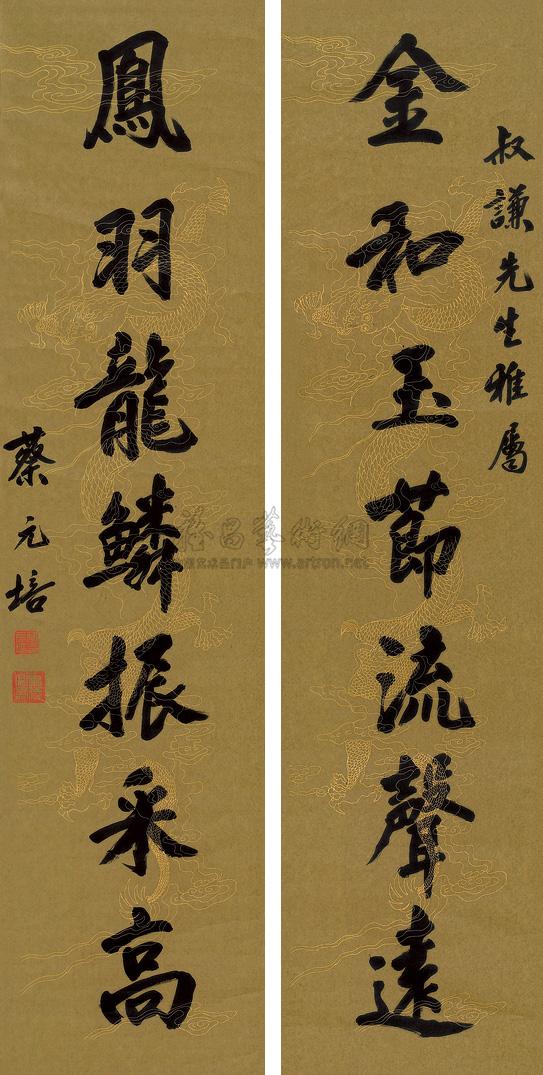 叔謙先生雅屬
金和玉節流聲遠
鳳羽龍鱗振采高
蔡元培
雅昌藝術網
www.artron.net